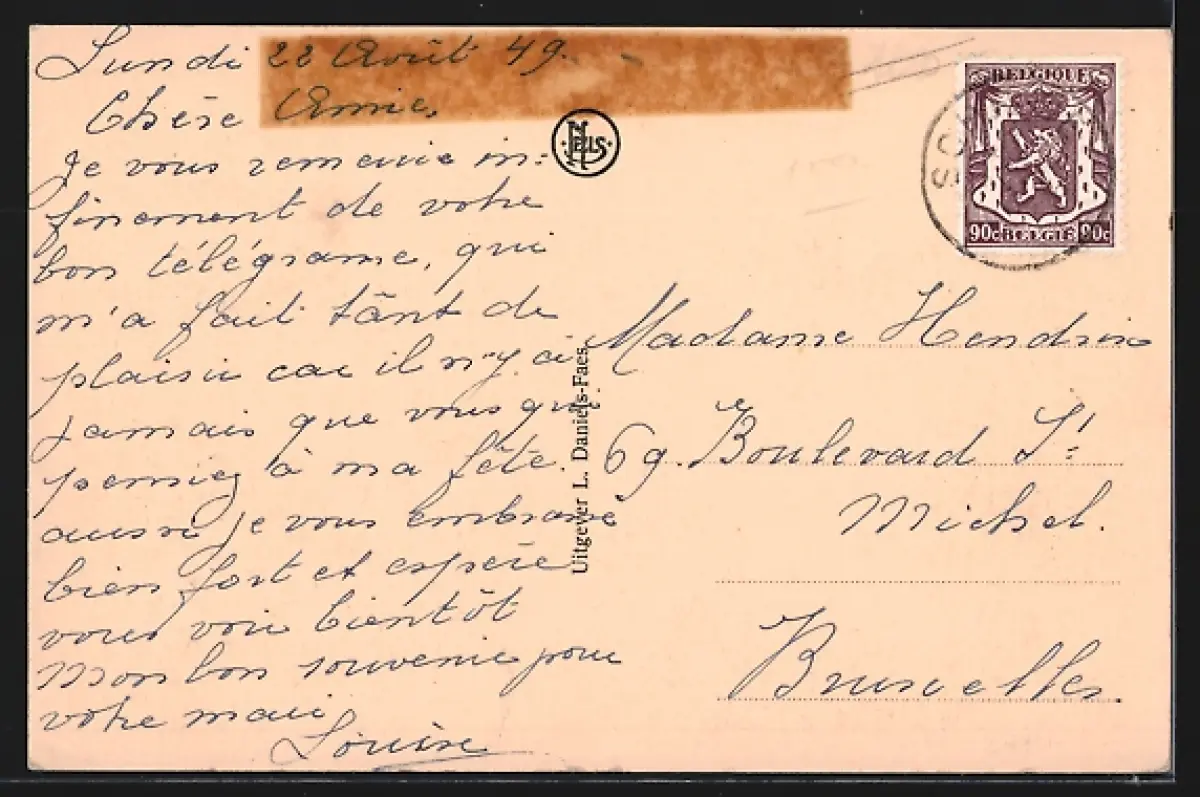 Lundi 22 Août 49.
Chère Amie,
Je vous remercie in=
finement de votre
bon télégrame, qui
m'a fait tânt de
plaisir car il n'y à
jamais que vous qui
pensiez à ma fête.
aussi je vous embrasse
bien fort et espère
vous voir bientôt
Mon bon souvenir pour
votre mari
Louise
NELS
Uitgever L. Daniels-Faes.
BELGIQUE
90c BELGIE 90c
Madame Hendrix
69. Boulevard St
Michel.
Bruxelles.